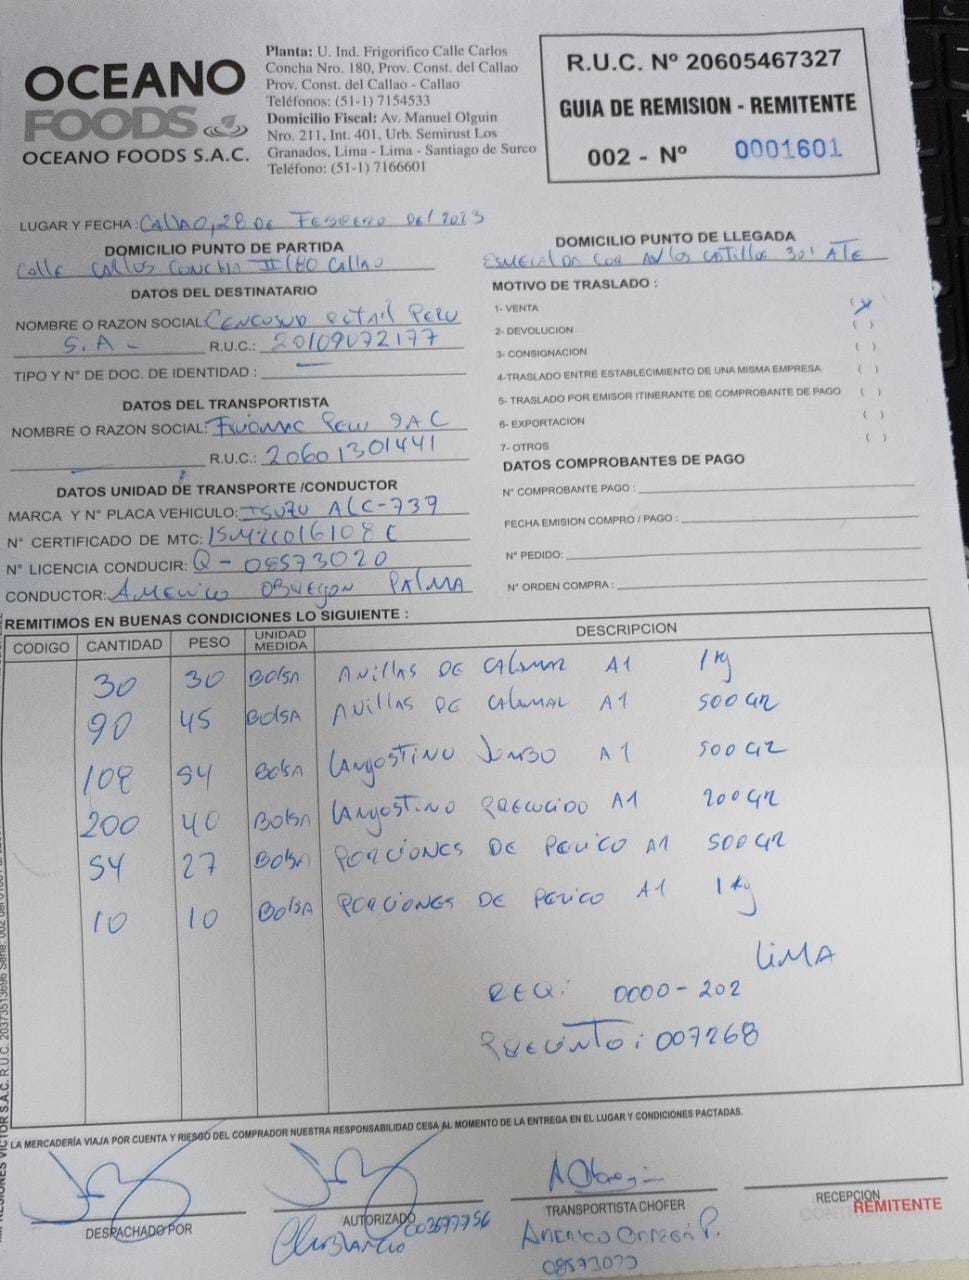 OCEANO
FOODS
OCEANO FOODS S.A.C.
Planta: U. Ind. Frigorifico Calle Carlos
Concha Nro. 180, Prov. Const. del Callao
Prov. Const. del Callao - Callao
Teléfonos: (51-1) 7154533
Domicilio Fiscal: Av. Manuel Olguin
Nro. 211, Int. 401, Urb. Semirust Los
Granados, Lima - Lima - Santiago de Surco
Teléfono: (51-1) 7166601
R.U.C. Nº 20605467327
GUIA DE REMISION - REMITENTE
002 - Nº 0001601
LUGAR Y FECHA: Callao, 28 DE Febrero Del 2023
DOMICILIO PUNTO DE PARTIDA
Calle Carlos Concha #180 Callao
DOMICILIO PUNTO DE LLEGADA
Esmeralda con Av los Castillos 301 ATE
DATOS DEL DESTINATARIO
NOMBRE O RAZON SOCIAL: Cencosud Retail Peru
S.A - R.U.C.: 20109072177
TIPO Y Nº DE DOC. DE IDENTIDAD : —
MOTIVO DE TRASLADO :
1- VENTA (X)
2- DEVOLUCION ( )
3- CONSIGNACION ( )
4-TRASLADO ENTRE ESTABLECIMIENTO DE UNA MISMA EMPRESA ( )
5- TRASLADO POR EMISOR ITINERANTE DE COMPROBANTE DE PAGO ( )
6- EXPORTACION ( )
7- OTROS ( )
DATOS DEL TRANSPORTISTA
NOMBRE O RAZON SOCIAL: Peru SAC
R.U.C.: 20601301441
DATOS UNIDAD DE TRANSPORTE /CONDUCTOR
MARCA Y Nº PLACA VEHICULO: ISUZU ALC-739
Nº CERTIFICADO DE MTC: 15M2C016108C
Nº LICENCIA CONDUCIR: Q-08573020
CONDUCTOR: Americo Obregon Palma
DATOS COMPROBANTES DE PAGO
Nº COMPROBANTE PAGO :
FECHA EMISION COMPRO / PAGO :
Nº PEDIDO:
Nº ORDEN COMPRA :
REMITIMOS EN BUENAS CONDICIONES LO SIGUIENTE :
CODIGO CANTIDAD PESO UNIDAD MEDIDA DESCRIPCION
30 30 Bolsa Anillas DE Calamar A1 1kg
90 45 Bolsa Anillas DE Calamar A1 500GR
108 54 Bolsa Langostino Jumbo A1 500GR
200 40 Bolsa Langostino Precocido A1 200GR
54 27 Bolsa PORCIONES DE PERICO A1 500GR
10 10 Bolsa PORCIONES DE PERICO A1 1kg
LIMA
REQ: 0000-202
Precinto: 007268
LA MERCADERÍA VIAJA POR CUENTA Y RIESGO DEL COMPRADOR NUESTRA RESPONSABILIDAD CESA AL MOMENTO DE LA ENTREGA EN EL LUGAR Y CONDICIONES PACTADAS.
DESPACHADO POR
AUTORIZADO
TRANSPORTISTA CHOFER
RECEPCION
REMITENTE
Americo Obregon P.